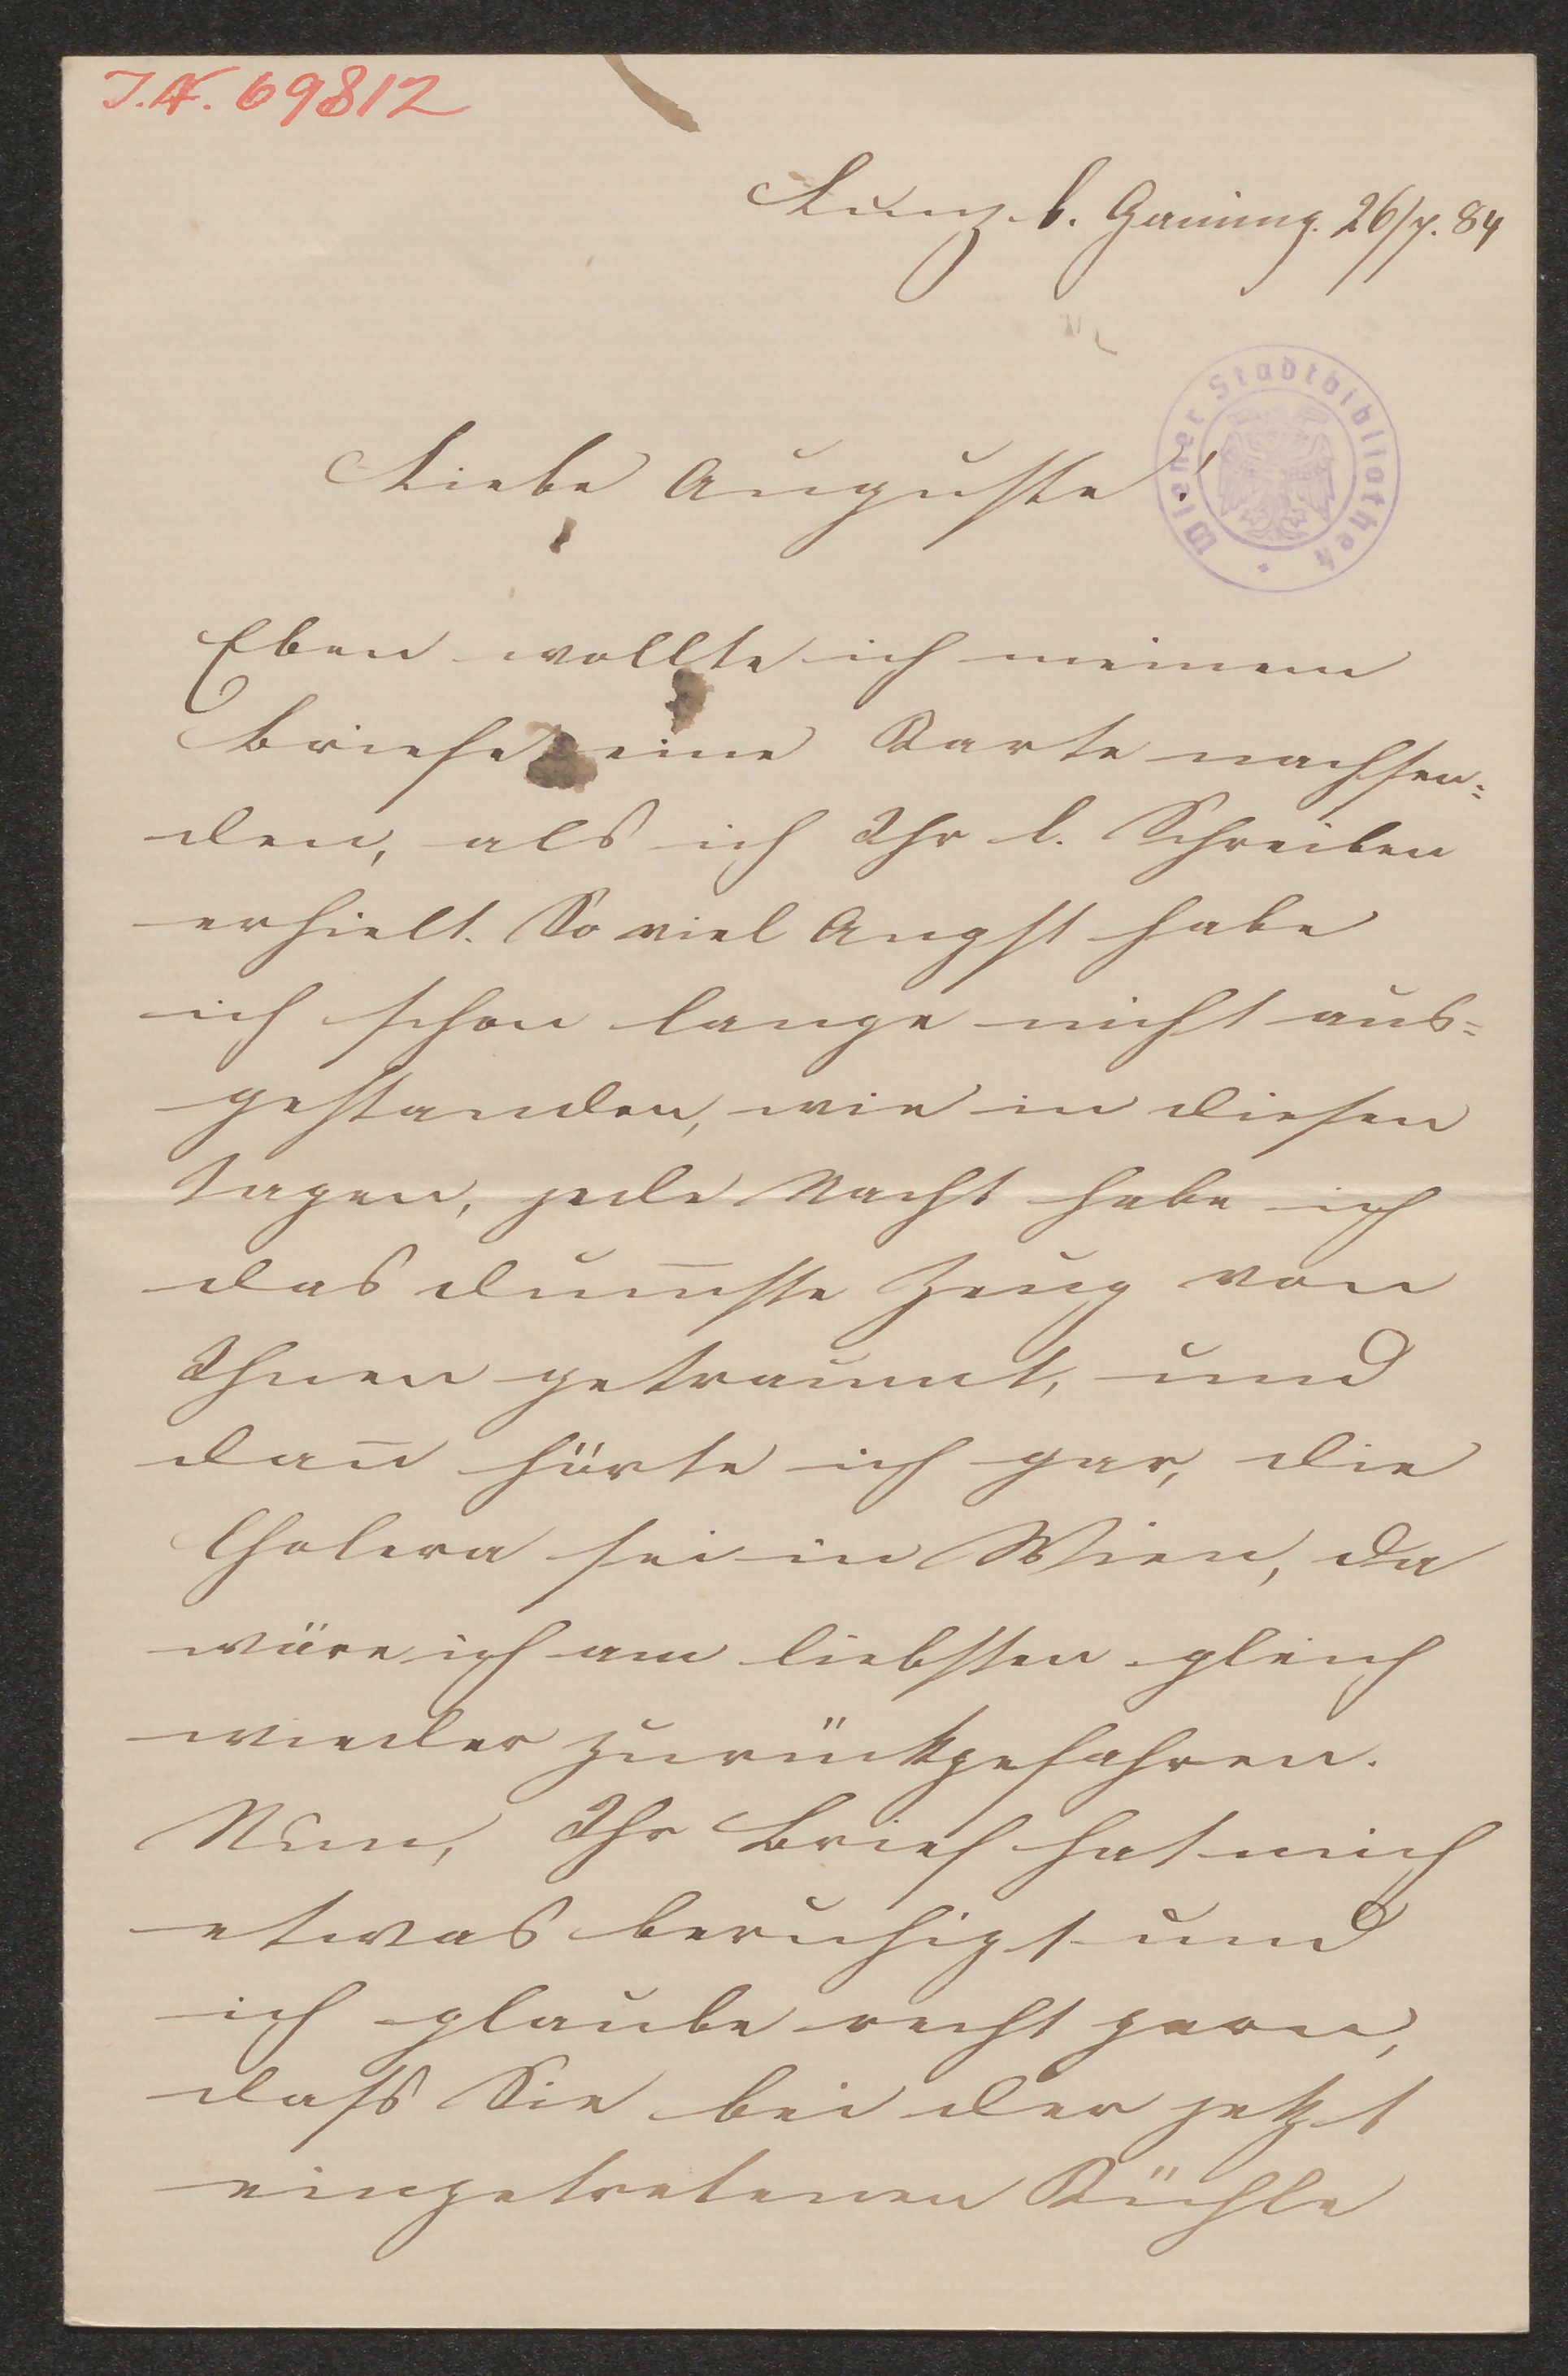 J.N. 69812
Lunz b. Gaming. 26/7. 84
Wiener Stadtbibliothek
Liebe Auguste!
Eben wollte ich meinem
Briefe eine Karte nachsen=
den, als ich Ihr l. Schreiben
erhielt. So viel Angst habe
ich schon lange nicht aus=
gestanden, wie in diesen
Tagen, jede Nacht habe ich
das dum̅ste Zeug von
Ihnen getraumt, und
dan̅ hörte ich gar, die
Cholera sei in Wien, da
wäre ich am liebsten gleich
wieder zurückgefahren.
Nun, Ihr Brief hat mich
etwas beruhigt und
ich glaube recht gern,
dass Sie bei der jetzt
eingetretenen Kühle